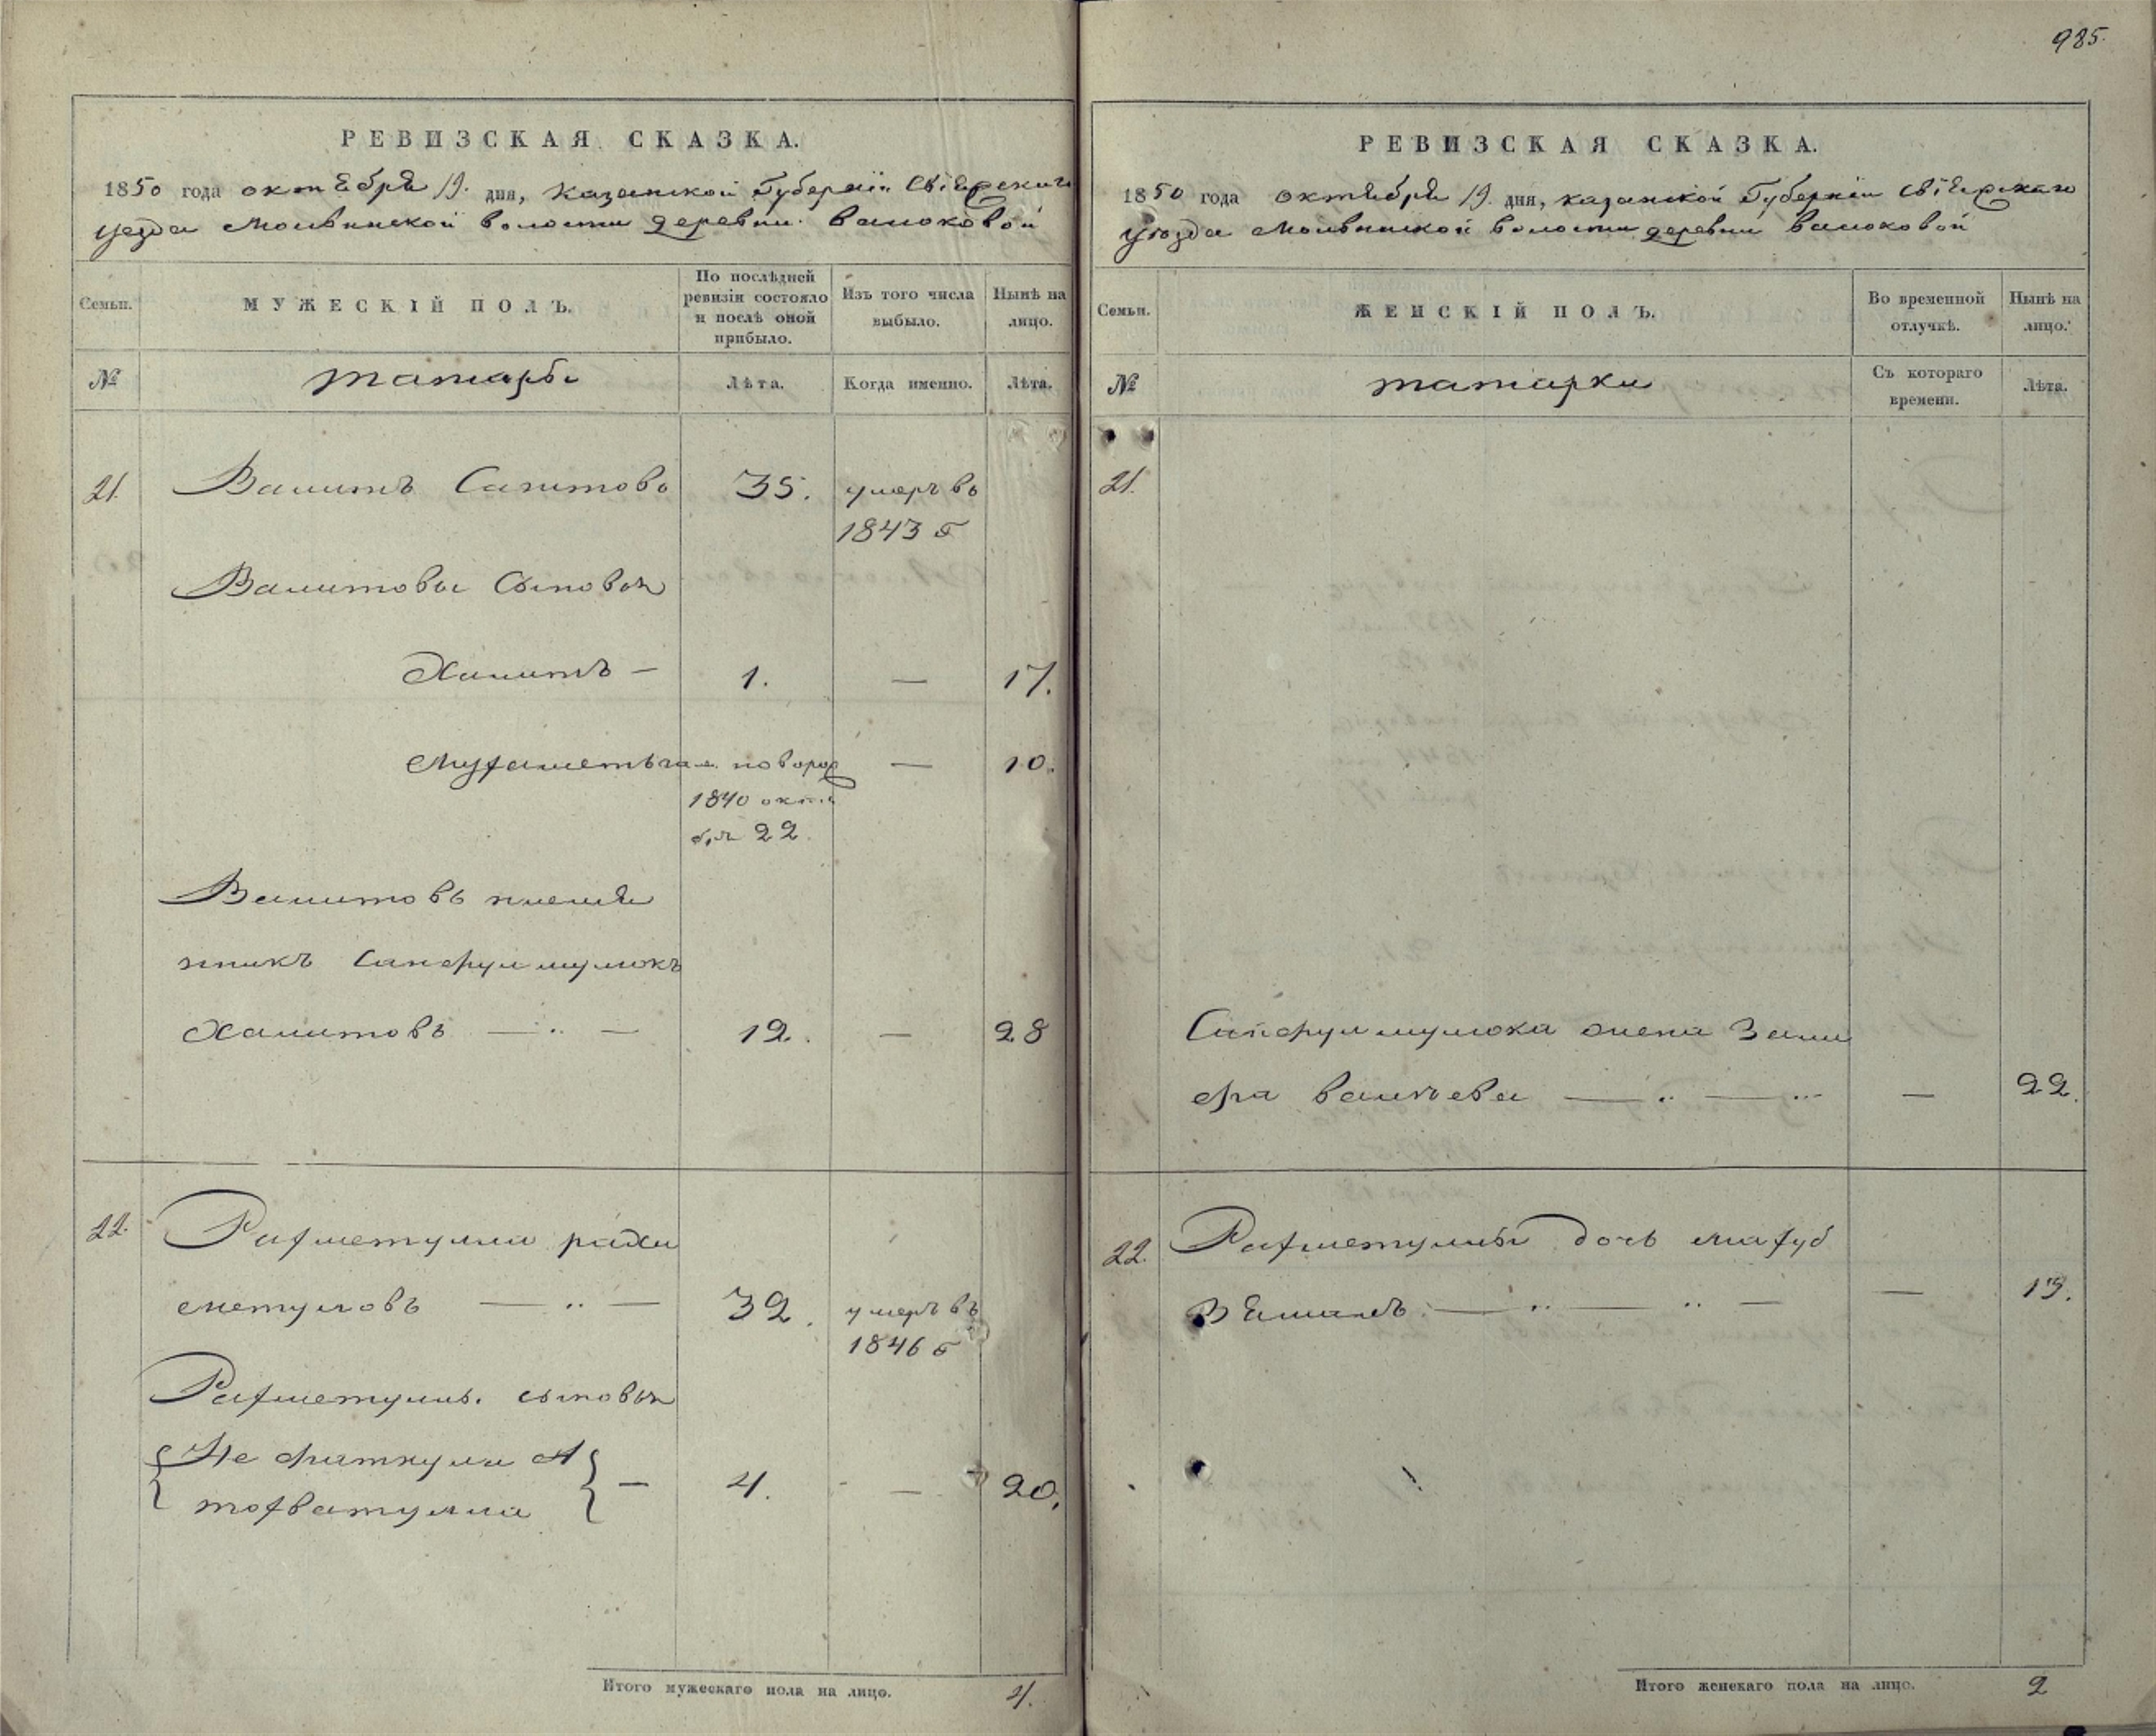 985.
РЕВИЗСКАЯ СКАЗКА.
1850 года октября 19. дня, Казанской Губерніи Свіяжскаго
уезда Молвинской волости деревни
Семьи.
МУЖЕСКІЙ ПОЛЪ.
По послѣдней ревизіи состояло и послѣ оной прибыло.
Изъ того числа выбыло.
Нынѣ на лицо.
№
татары
Лѣта.
Когда именно.
Лѣта.
21. Валитъ Сагитовъ 35. умеръ въ
1843 г
Валитовы Сыновья
Халитъ — 1. — 17.
новорож
— 10.
1840 октя
бря 22.
Валитовъ племя
нникъ
Халитовъ — 12. — 28
22. Рахметулла
32. умеръ въ
1846 г
Рахметуллы. сыновья
4. — 20.
Итого мужескаго пола на лицо. 4.
РЕВИЗСКАЯ СКАЗКА.
1850 года октября 19. дня, казанской Губерніи Свіяжскаго
уѣзда Молвинской волости деревни
Семьи.
ЖЕНСКІЙ ПОЛЪ.
Во временной отлучкѣ.
Нынѣ на лицо.
№
татарки
Съ котораго времени.
Лѣта.
21.
жена Зали
фа Валитева — 22.
22. Рахметуллы дочь Махуб
— 19.
Итого женскаго пола на лицо. 2